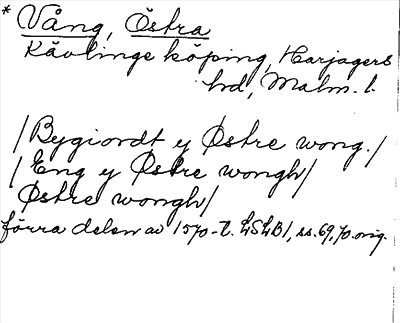 * Vång, Östra
Kävlinge köping, Harjagers
hd, Malm. l.
/Bygiordt y Østre wong./
/Eng y Østre wongh/
Østre wongh/
förra delen av 1570-t. LSLB1, ss. 69, 70. orig.